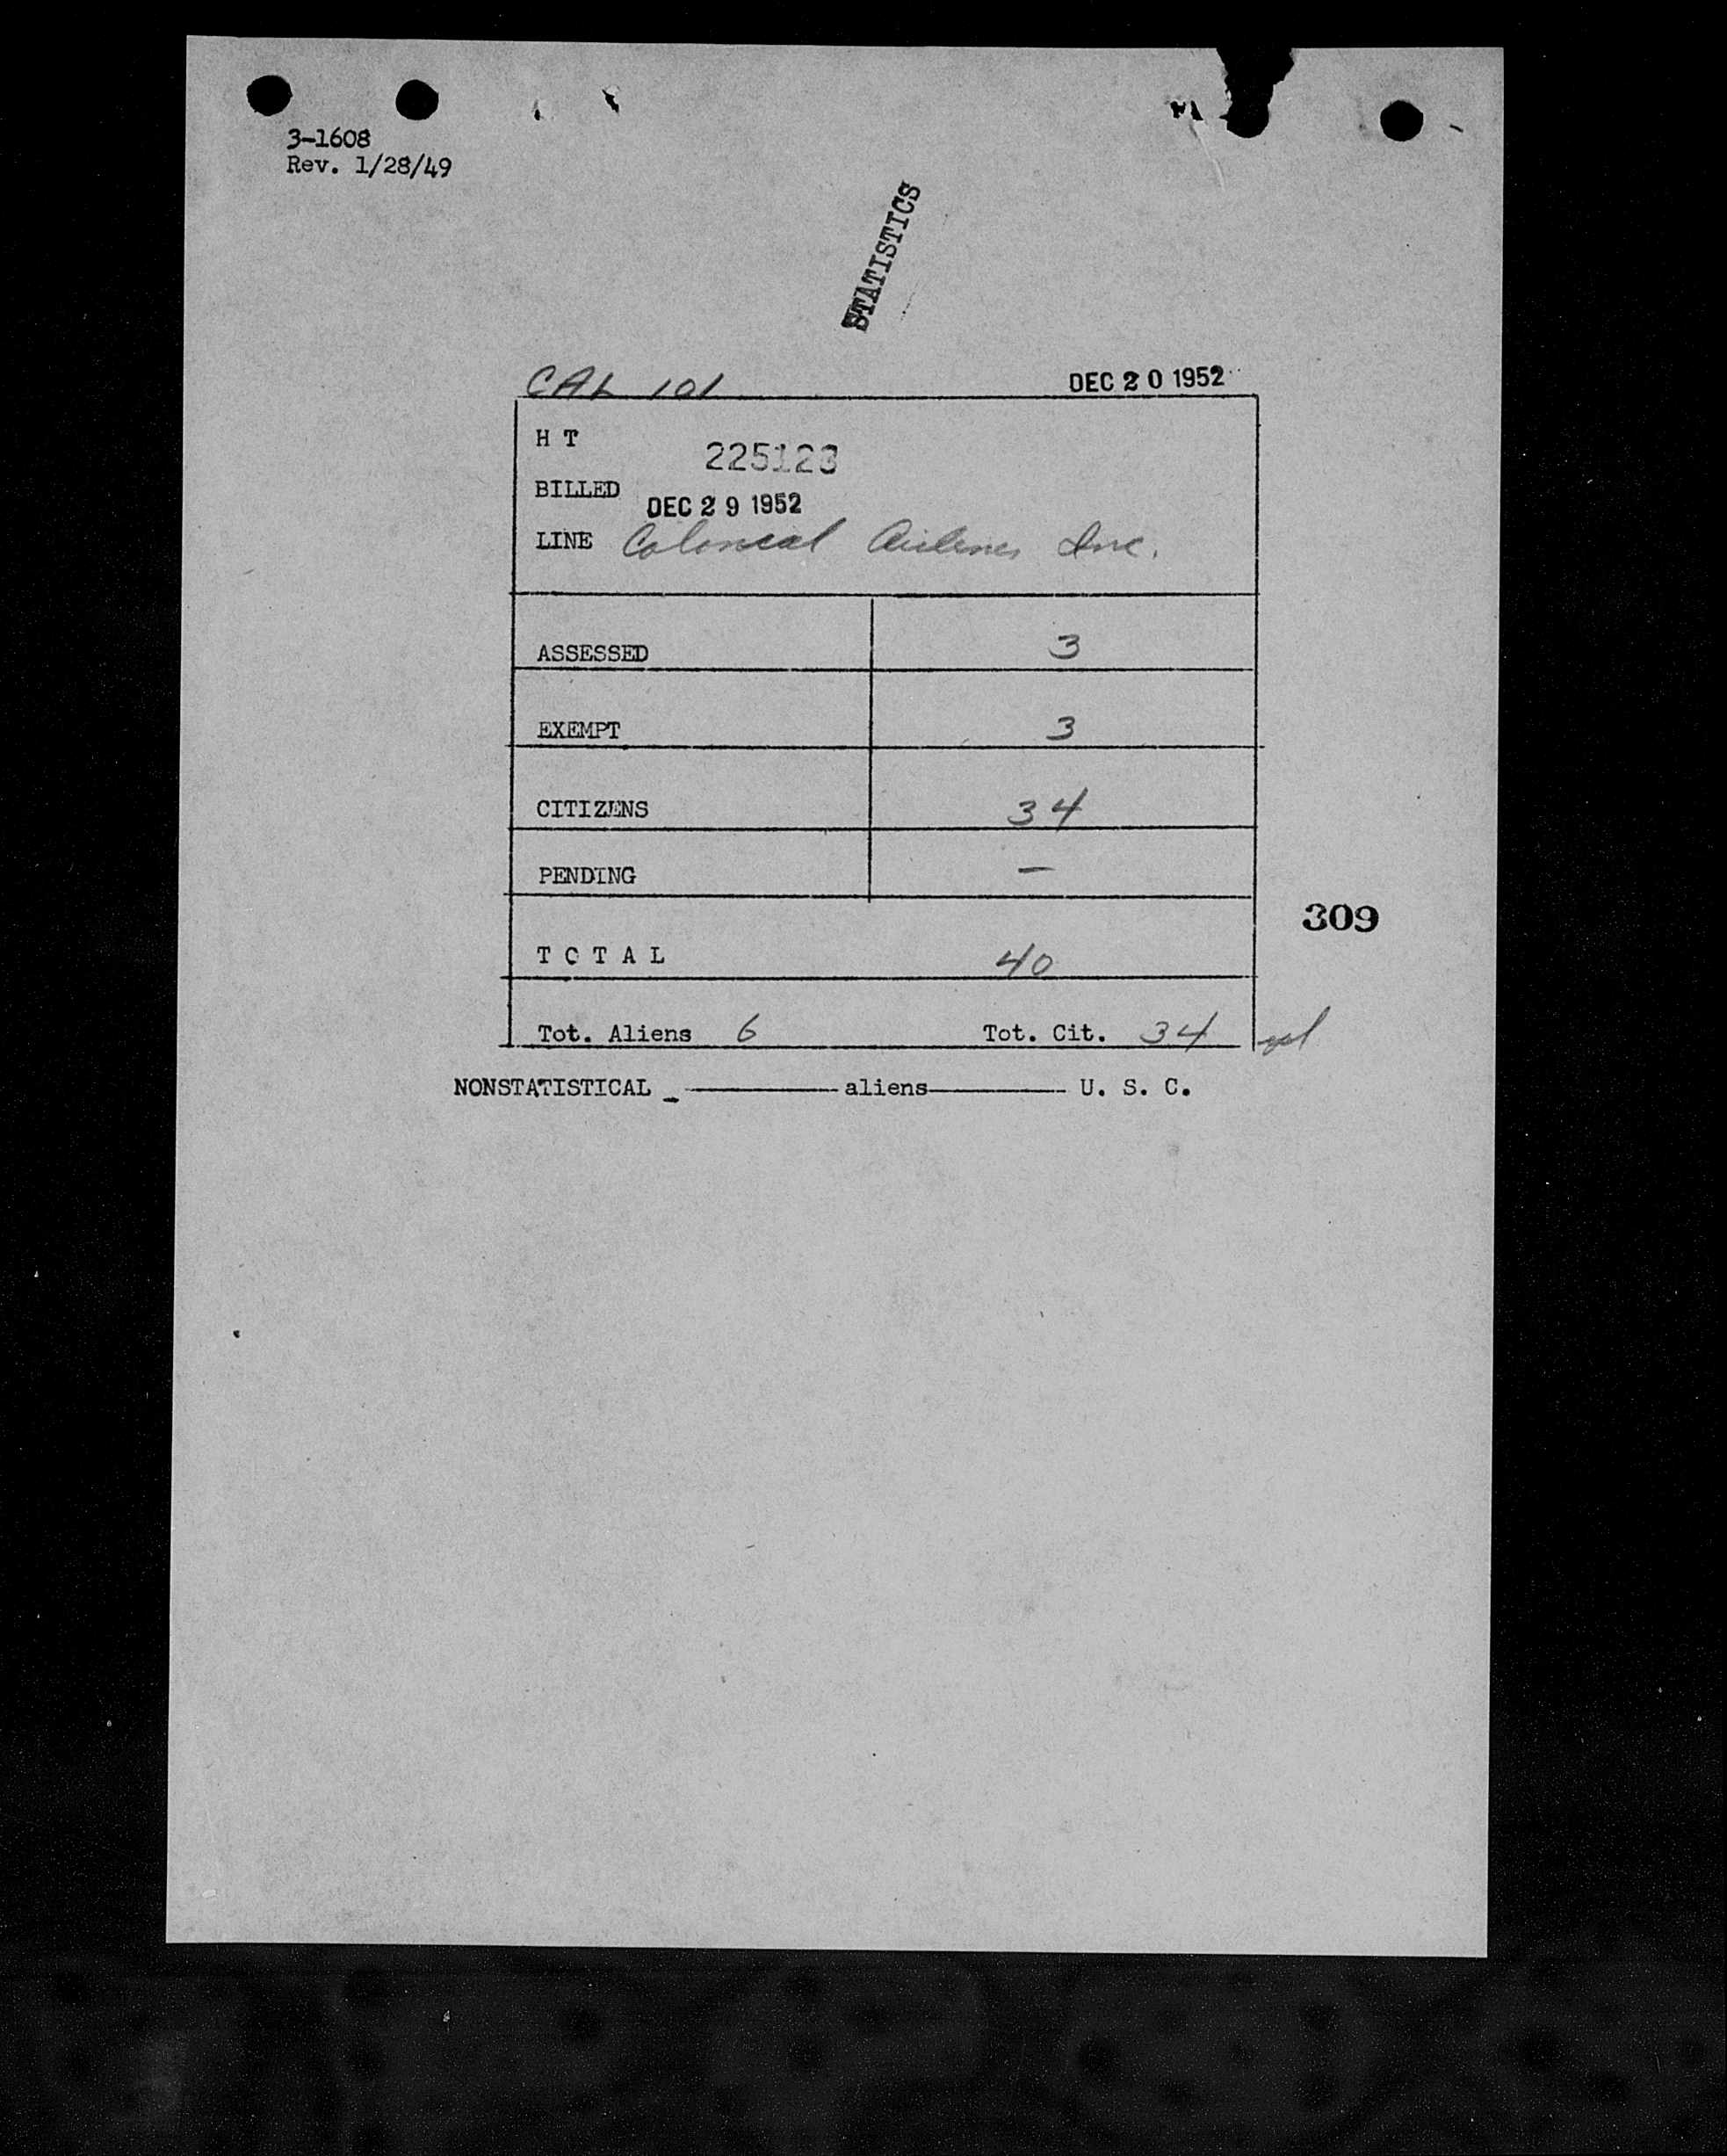 3-1608
Rev. 1/28/49
STATISTICS
CAL 101 DEC 20 1952
H T 225123
BILLED DEC 29 1952
LINE Colonial Airlines Inc.
ASSESSED 3
EXEMPT 3
CITIZENS 34
PENDING —
309
TOTAL 40
Tot. Aliens 6 Tot. Cit. 34
NONSTATISTICAL _ ———— aliens———— U. S. C.